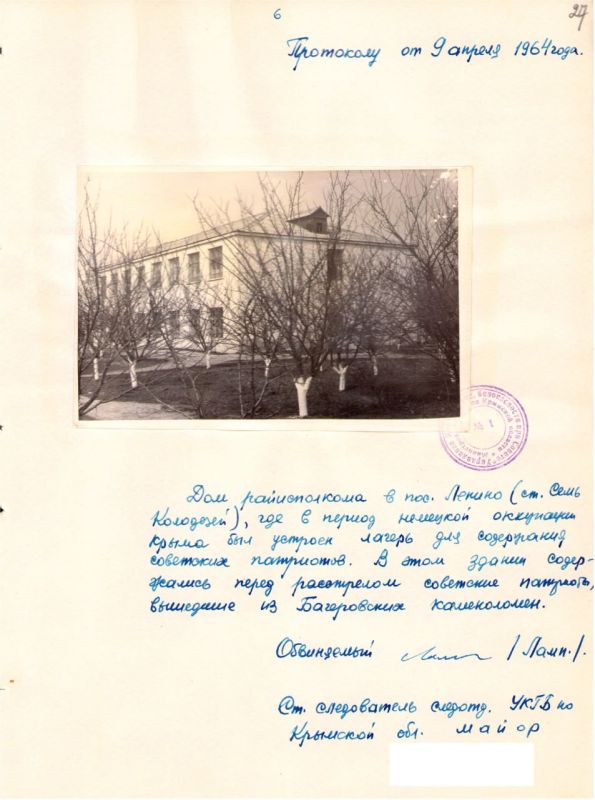 6
27
Протоколу от 9 апреля 1964 года.
№ 1
Дом райисполкома в пос. Ленино (ст. Семь
Колодезей), где в период немецкой оккупации
Крыма был устроен лагерь для содержания
советских патриотов. В этом здании содер-
жались перед расстрелом советские патриоты,
вышедшие из Багеровских каменоломен.
Обвиняемый /Ламп./.
Ст. следователь следотд. УКГБ по
Крымской обл. майор